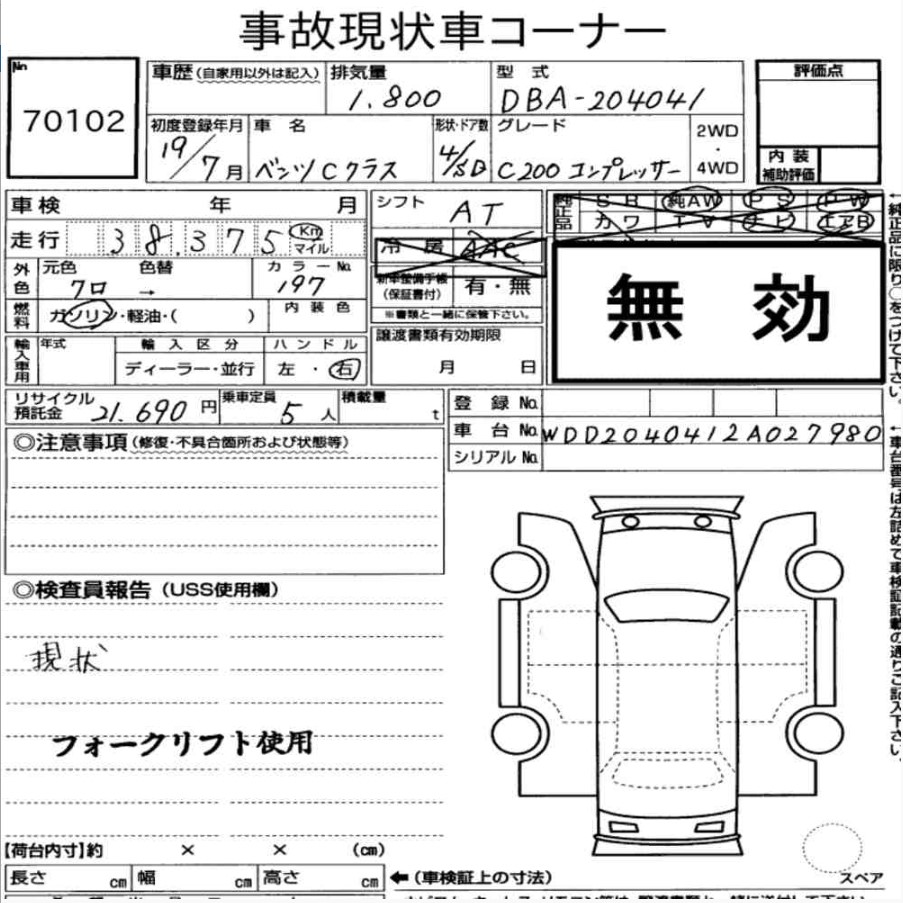 事故現状車コーナー
No.
70102
車歴(自家用以外は記入)
排気量
1.800
型式
DBA-204041
評価点
初度登録年月
19/7月
車名
ベンツCクラス
形状・ドア数
4/SD
グレード
C200 コンプレッサー
2WD
・
4WD
内装
補助評価
車検 年 月
シフト
AT
純正品
SR 純AW PS PW
カワ TV ナビ エアB
走行 38.375 Km
マイル
冷房 AAC
外色
元色 色替
クロ →
カラーNo.
197
新車整備手帳
(保証書付)
有・無
無効
燃料
ガソリン・軽油・( )
内装色
※書類と一緒に保管下さい。
輸入車用
年式
輸入区分
ディーラー・並行
ハンドル
左・右
譲渡書類有効期限
月 日
←純正品に限り○をつけて下さい。
リサイクル
預託金
21.690円
乗車定員
5人
積載量
t
登録No.
車台No. WDD2040412A027980
シリアルNo.
◎注意事項(修復・不具合箇所および状態等)
←車台番号は左詰めで車検証記載の通りご記入下さい。
◎検査員報告(USS使用欄)
現状
フォークリフト使用
【荷台内寸】約 × × (cm)
長さ cm 幅 cm 高さ cm
←(車検証上の寸法)
スペア